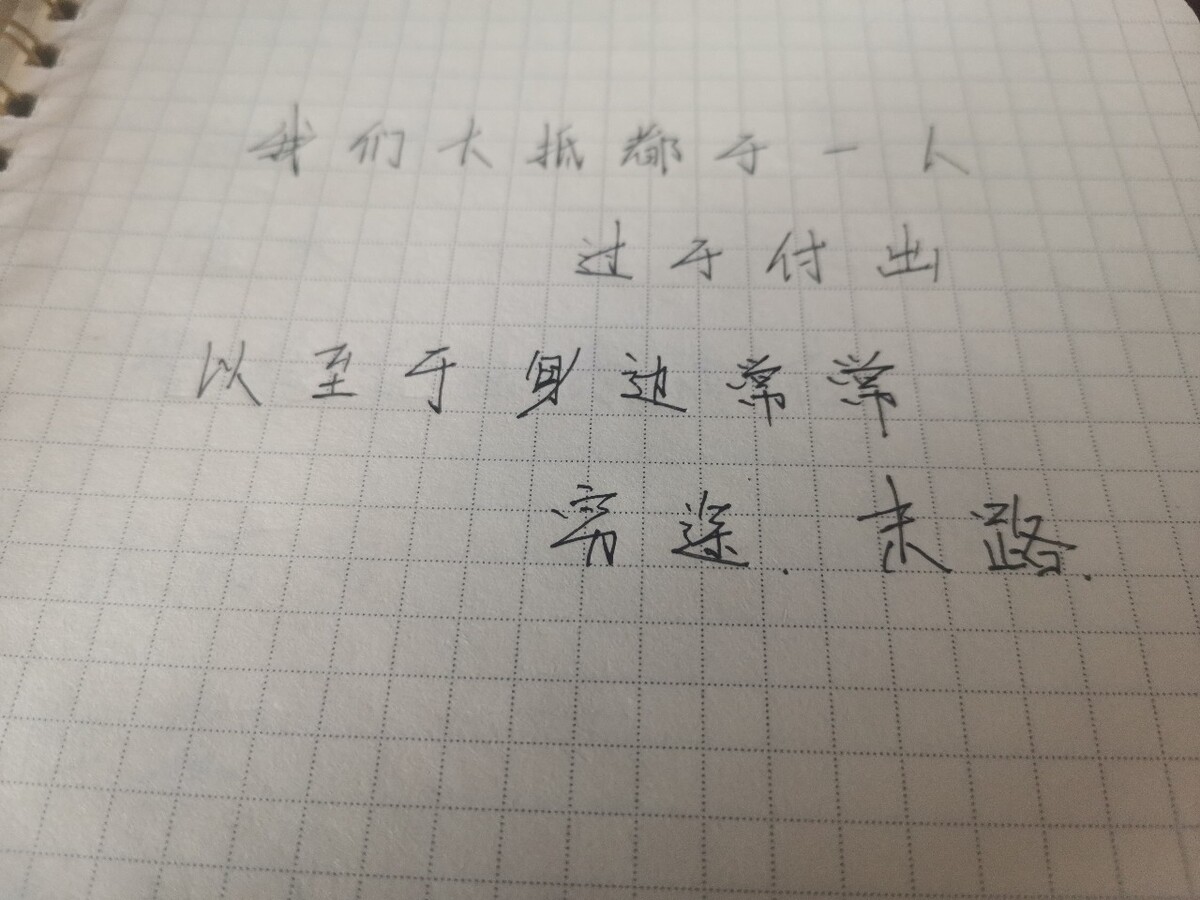 我们大抵都于一人
过于付出
以至于身边常常
穷途.末路.